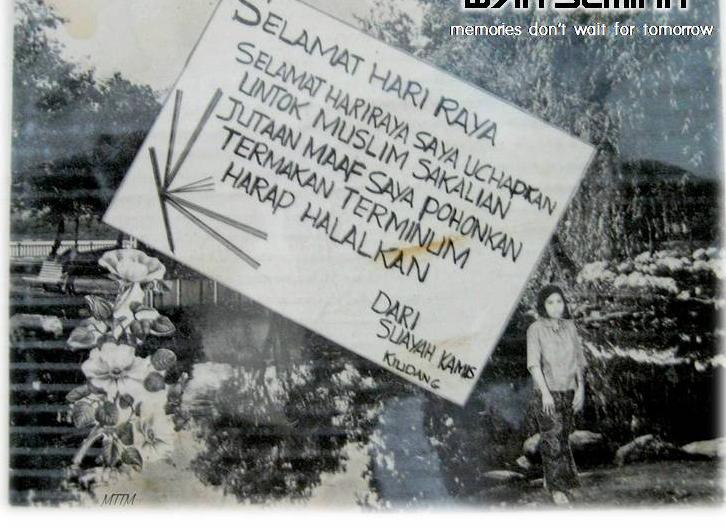 memories don't wait for tomorrow
SELAMAT HARI RAYA
SELAMAT HARIRAYA SAYA UCHAPKAN
UNTOK MUSLIM SAKALIAN
JUTAAN MAAF SAYA POHONKAN
TERMAKAN TERMINUM
HARAP HALALKAN
DARI
KAMIS
KILIDANG
MTTM